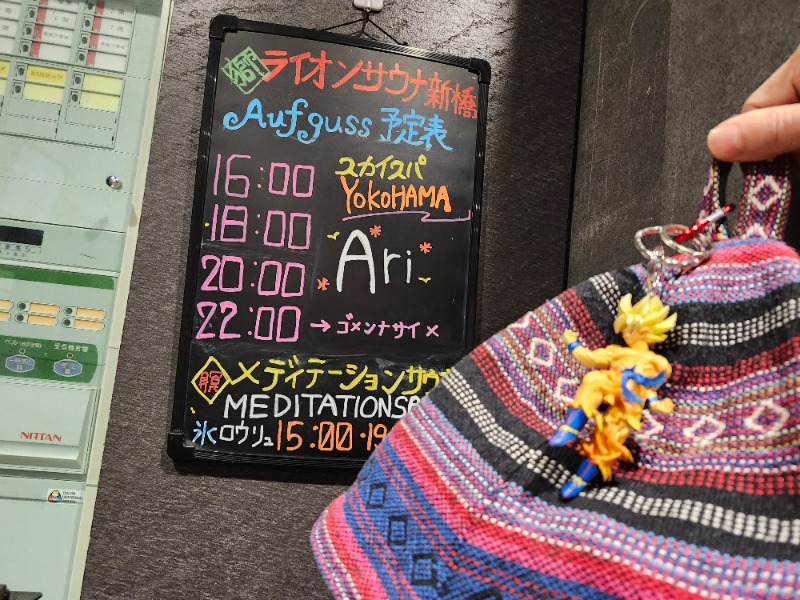 ライオンサウナ新橋
Aufguss 予定表
16:00
18:00
20:00
22:00 → ゴメンナサイ ×
スカイスパ
YOKOHAMA
Ari
メディテーションサウナ
MEDITATIONS
氷 ロウリュ 15:00・19
NITTAN